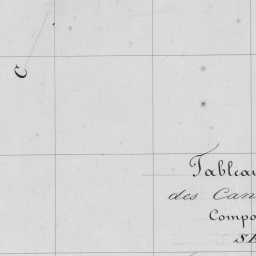 C
Tableau
des Can
Compo